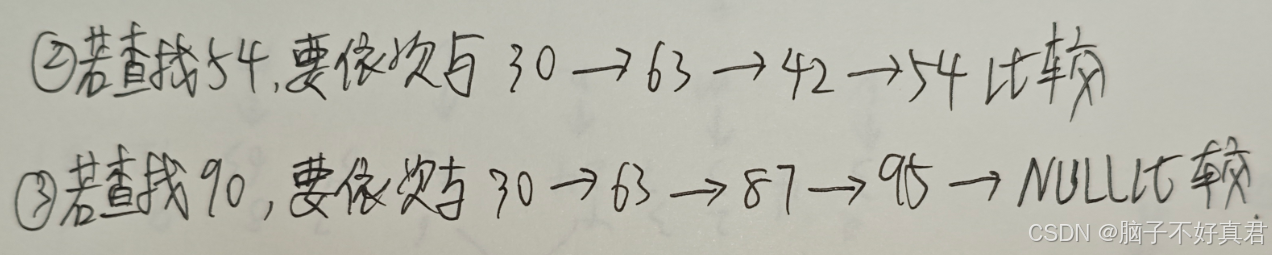 ②若查找54,要依次与 30→63→42→54比较
③若查找90,要依次与30→63→87→95→NULL比较.
CSDN @脑子不好真君